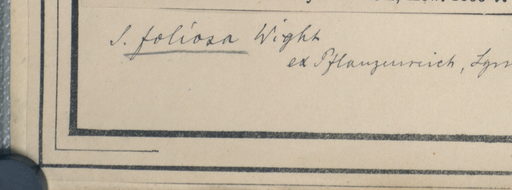 S. foliosa Wight
ex Pflanzenreich,